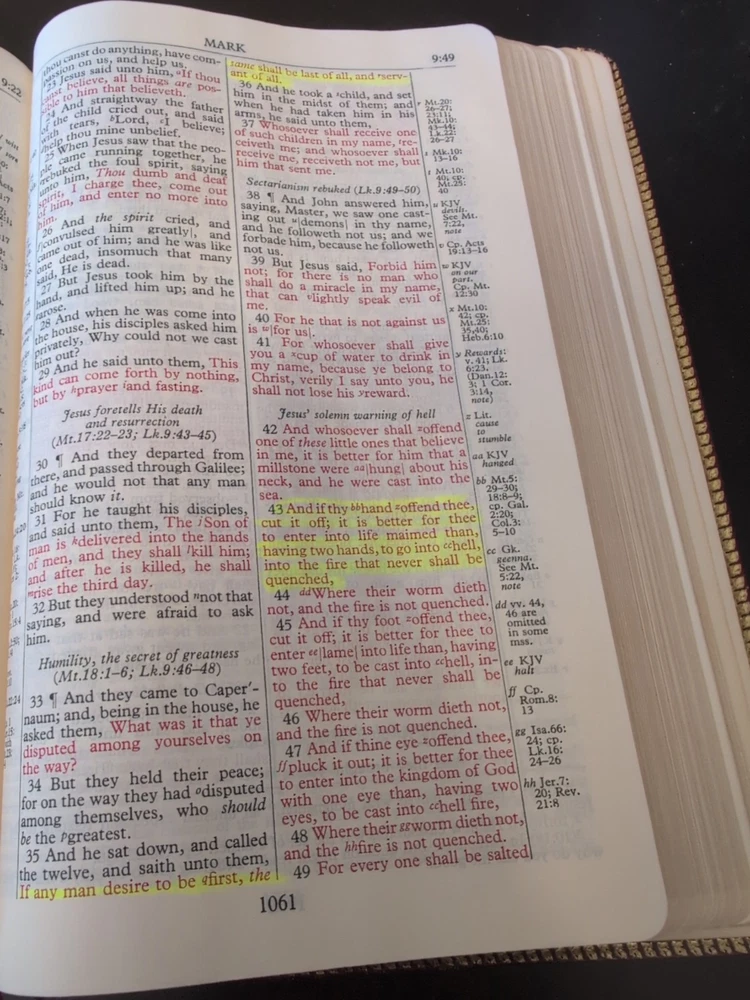 MARK
9:49
9:22
thou canst do anything, have com-
passion on us, and help us.
23 Jesus said unto him, aIf thou
canst believe, all things are pos-
sible to him that believeth.
24 And straightway the father
of the child cried out, and said
with tears, bLord, cI believe;
help thou mine unbelief.
25 When Jesus saw that the peo-
ple came running together, he
rebuked the foul spirit, saying
unto him, Thou dumb and deaf
spirit, I charge thee, come out
of him, and enter no more into
him.
26 And the spirit cried, and
|convulsed him greatly|, and
came out of him; and he was like
one dead, insomuch that many
said, He is dead.
27 But Jesus took him by the
hand, and lifted him up; and he
arose.
28 And when he was come into
the house, his disciples asked him
privately, Why could not we cast
him out?
29 And he said unto them, This
kind can come forth by nothing,
but by hprayer iand fasting.
Jesus foretells His death
and resurrection
(Mt.17:22–23; Lk.9:43–45)
30 ¶ And they departed from
there, and passed through Galilee;
and he would not that any man
should know it.
31 For he taught his disciples,
and said unto them, The jSon of
man is kdelivered into the hands
of men, and they shall lkill him;
and after he is killed, he shall
mrise the third day.
32 But they understood nnot that
saying, and were afraid to ask
him.
Humility, the secret of greatness
(Mt.18:1–6; Lk.9:46–48)
33 ¶ And they came to Caper′-
naum; and, being in the house, he
asked them, What was it that ye
disputed among yourselves on
the way?
34 But they held their peace;
for on the way they had odisputed
among themselves, who should
be the pgreatest.
35 And he sat down, and called
the twelve, and saith unto them,
If any man desire to be qfirst, the
same shall be last of all, and rserv-
ant of all.
36 And he took a schild, and set
him in the midst of them; and
when he had taken him in his
arms, he said unto them,
37 Whosoever shall receive one
of such children in my name, tre-
ceiveth me; and whosoever shall
receive me, receiveth not me, but
him that sent me.
Sectarianism rebuked (Lk.9:49–50)
38 ¶ And John answered him,
saying, Master, we saw one cast-
ing out u|demons| in thy name,
and he followeth not us; and we
forbade him, because he followeth
not us.
39 But Jesus said, Forbid him
not; for there is no man who
shall do a miracle in my name,
that can vlightly speak evil of
me.
40 For he that is not against us
is w|for us|.
41 For whosoever shall give
you a xcup of water to drink in
my name, because ye belong to
Christ, verily I say unto you, he
shall not lose his yreward.
Jesus' solemn warning of hell
42 And whosoever shall zoffend
one of these little ones that believe
in me, it is better for him that a
millstone were aa|hung| about his
neck, and he were cast into the
sea.
43 And if thy bbhand zoffend thee,
cut it off; it is better for thee
to enter into life maimed than,
having two hands, to go into cchell,
into the fire that never shall be
quenched,
44 ddWhere their worm dieth
not, and the fire is not quenched.
45 And if thy foot zoffend thee,
cut it off; it is better for thee to
enter ee|lame| into life than, having
two feet, to be cast into cchell, in-
to the fire that never shall be
quenched,
46 Where their worm dieth not,
and the fire is not quenched.
47 And if thine eye zoffend thee,
ffpluck it out; it is better for thee
to enter into the kingdom of God
with one eye than, having two
eyes, to be cast into cchell fire,
48 Where their ggworm dieth not,
and the hhfire is not quenched.
49 For every one shall be salted
r Mt.20:
26–27;
23:11;
Mk.10:
43–44;
Lk.22:
26–27
s Mk.10:
13–16
t Mt.10:
40; cp.
Mt.25:
40
u KJV
devils.
See Mt.
7:22,
note
v Cp. Acts
19:13–16
w KJV
on our
part.
Cp. Mt.
12:30
x Mt.10:
42; cp.
Mt.25:
35,40;
Heb.6:10
y Rewards:
v. 41; Lk.
6:23.
(Dan.12:
3; 1 Cor.
3:14,
note)
z Lit.
cause
to
stumble
aa KJV
hanged
bb Mt.5:
29–30;
18:8–9;
cp. Gal.
2:20;
Col.3:
5–10
cc Gk.
geenna.
See Mt.
5:22,
note
dd vv. 44,
46 are
omitted
in some
mss.
ee KJV
halt
ff Cp.
Rom.8:
13
gg Isa.66:
24; cp.
Lk.16:
24–26
hh Jer.7:
20; Rev.
21:8
1061